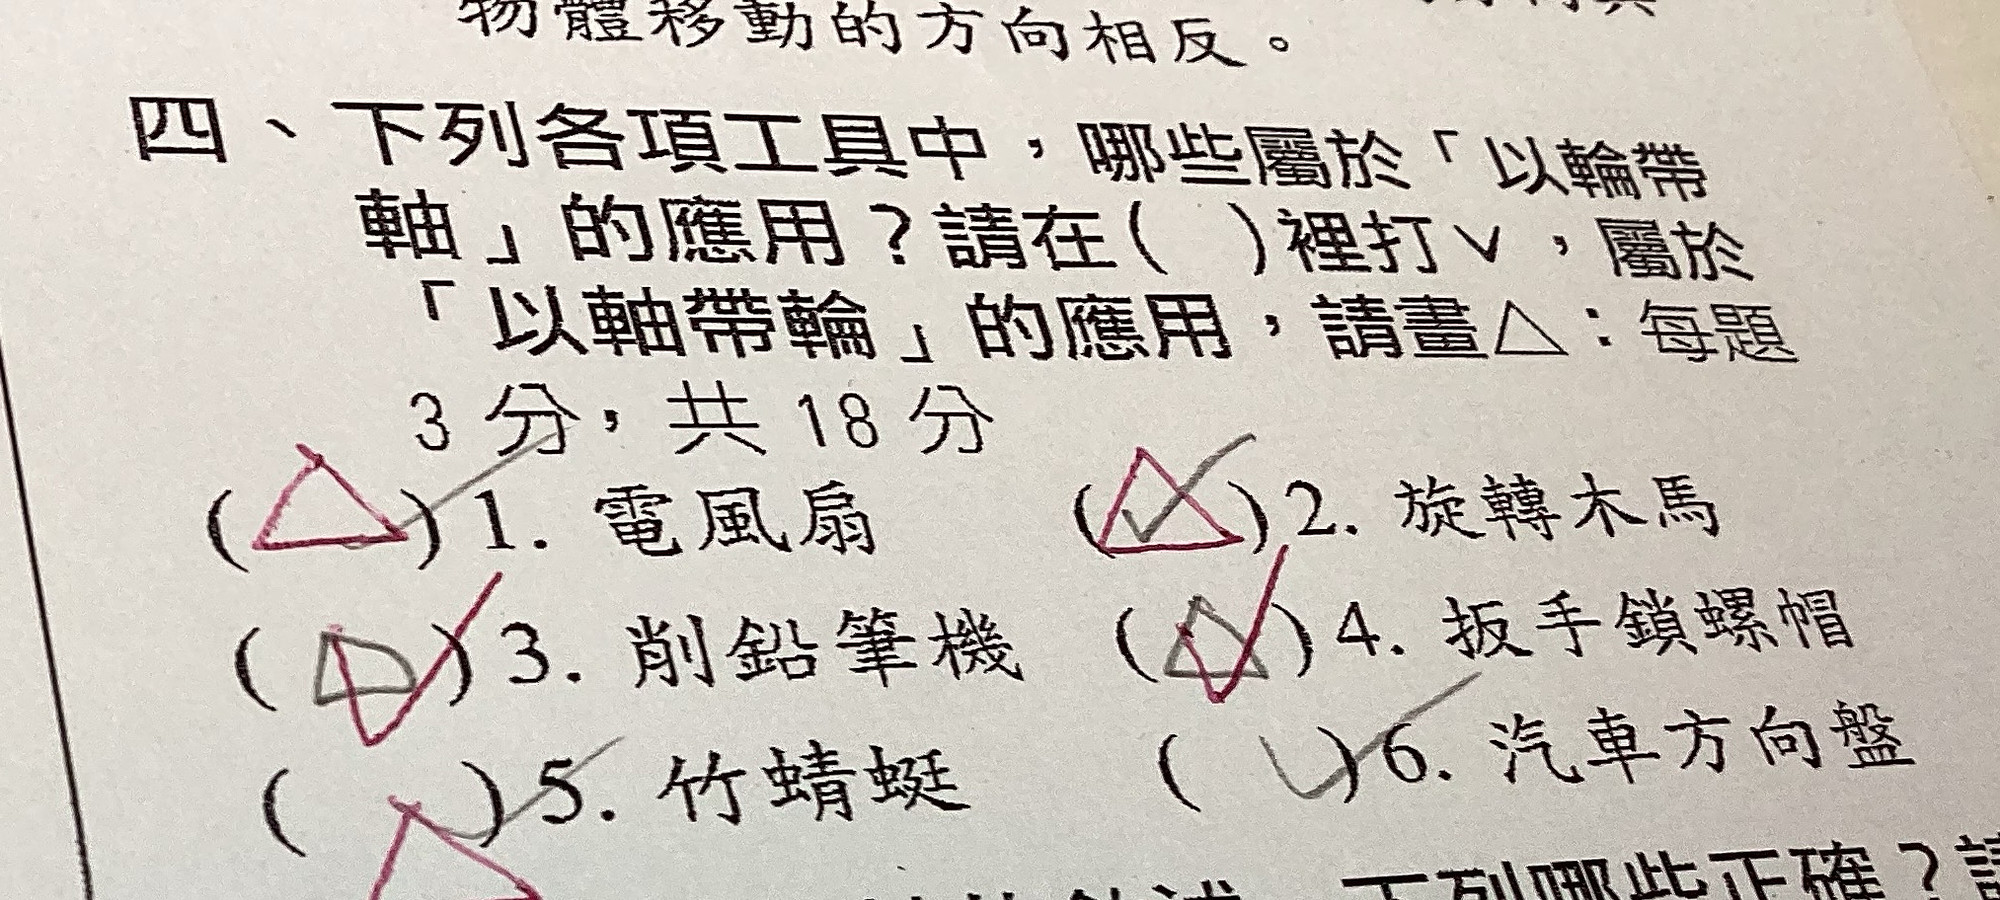 物體移動的方向相反。
四、下列各項工具中，哪些屬於「以輪帶
軸」的應用？請在( )裡打ˇ，屬於
「以軸帶輪」的應用，請畫△：每題
3 分，共 18 分
(△✓)1. 電風扇 (△✓)2. 旋轉木馬
(△✓)3. 削鉛筆機 (△✓)4. 扳手鎖螺帽
(△✓)5. 竹蜻蜓 (✓)6. 汽車方向盤
下列哪些正確？請